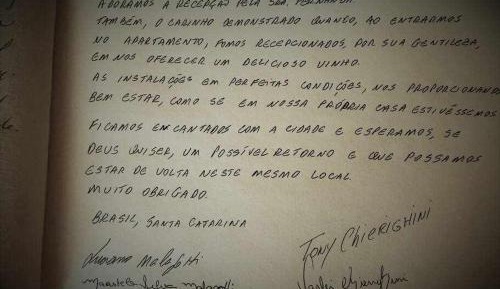 ADORAMOS A RECEPÇÃO PELA SRA. FERNANDA
TAMBÉM, O CARINHO DEMONSTRADO QUANDO, AO ENTRARMOS
NO APARTAMENTO, FOMOS RECEPCIONADOS, POR SUA GENTILEZA,
EM NOS OFERECER UM DELICIOSO VINHO.
AS INSTALAÇÕES EM PERFEITAS CONDIÇÕES, NOS PROPORCIONANDO
BEM ESTAR, COMO SE EM NOSSA PRÓPRIA CASA ESTIVÉSSEMOS
FICAMOS ENCANTADOS COM A CIDADE E ESPERAMOS, SE
DEUS QUISER, UM POSSÍVEL RETORNO E QUE POSSAMOS
ESTAR DE VOLTA NESTE MESMO LOCAL
MUITO OBRIGADO.
BRASIL, SANTA CATARINA
TONY CHIERIGHINI